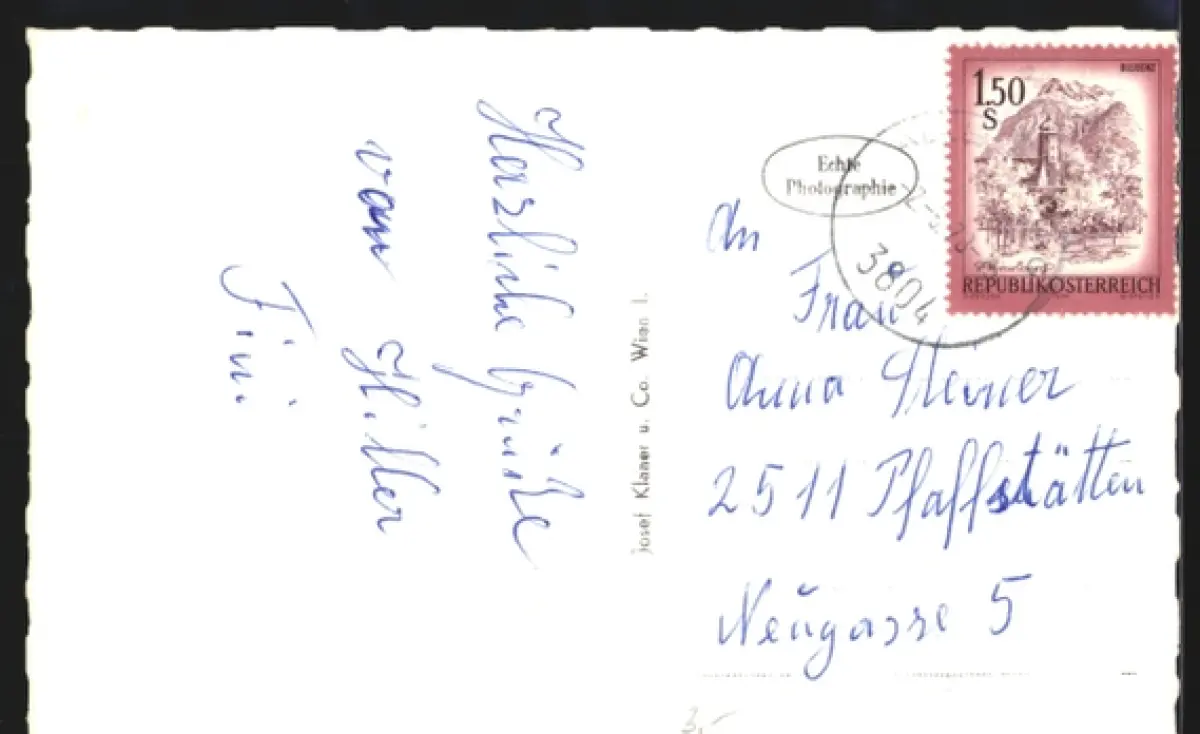 Herzliche Grüße
von Hiller
Fini.
Josef Klaner u. Co. Wien I.
Echte
Photographie
3804
BLUDENZ
1.50
S
REPUBLIK ÖSTERREICH
An
Frau
Anna Steiner
2511 Pfaffstätten
Neugasse 5
3,-